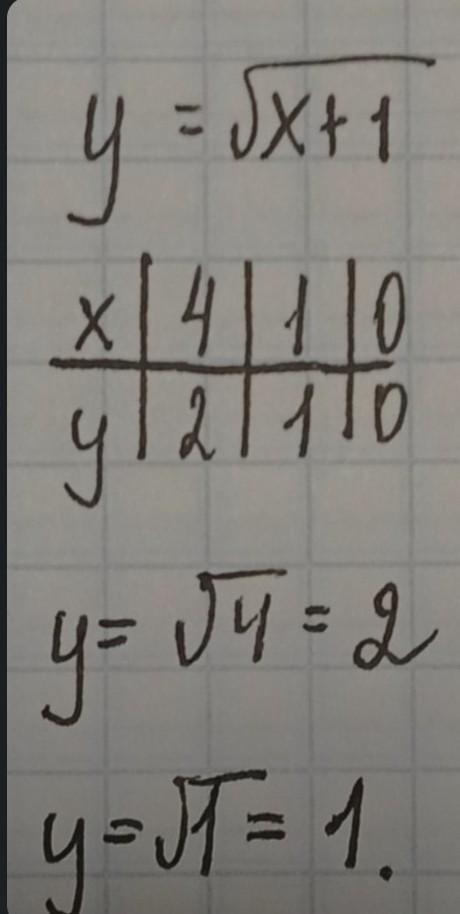 y = √x+1
x | 4 | 1 | 0
y | 2 | 1 | 0
y = √4 = 2
y = √1 = 1.